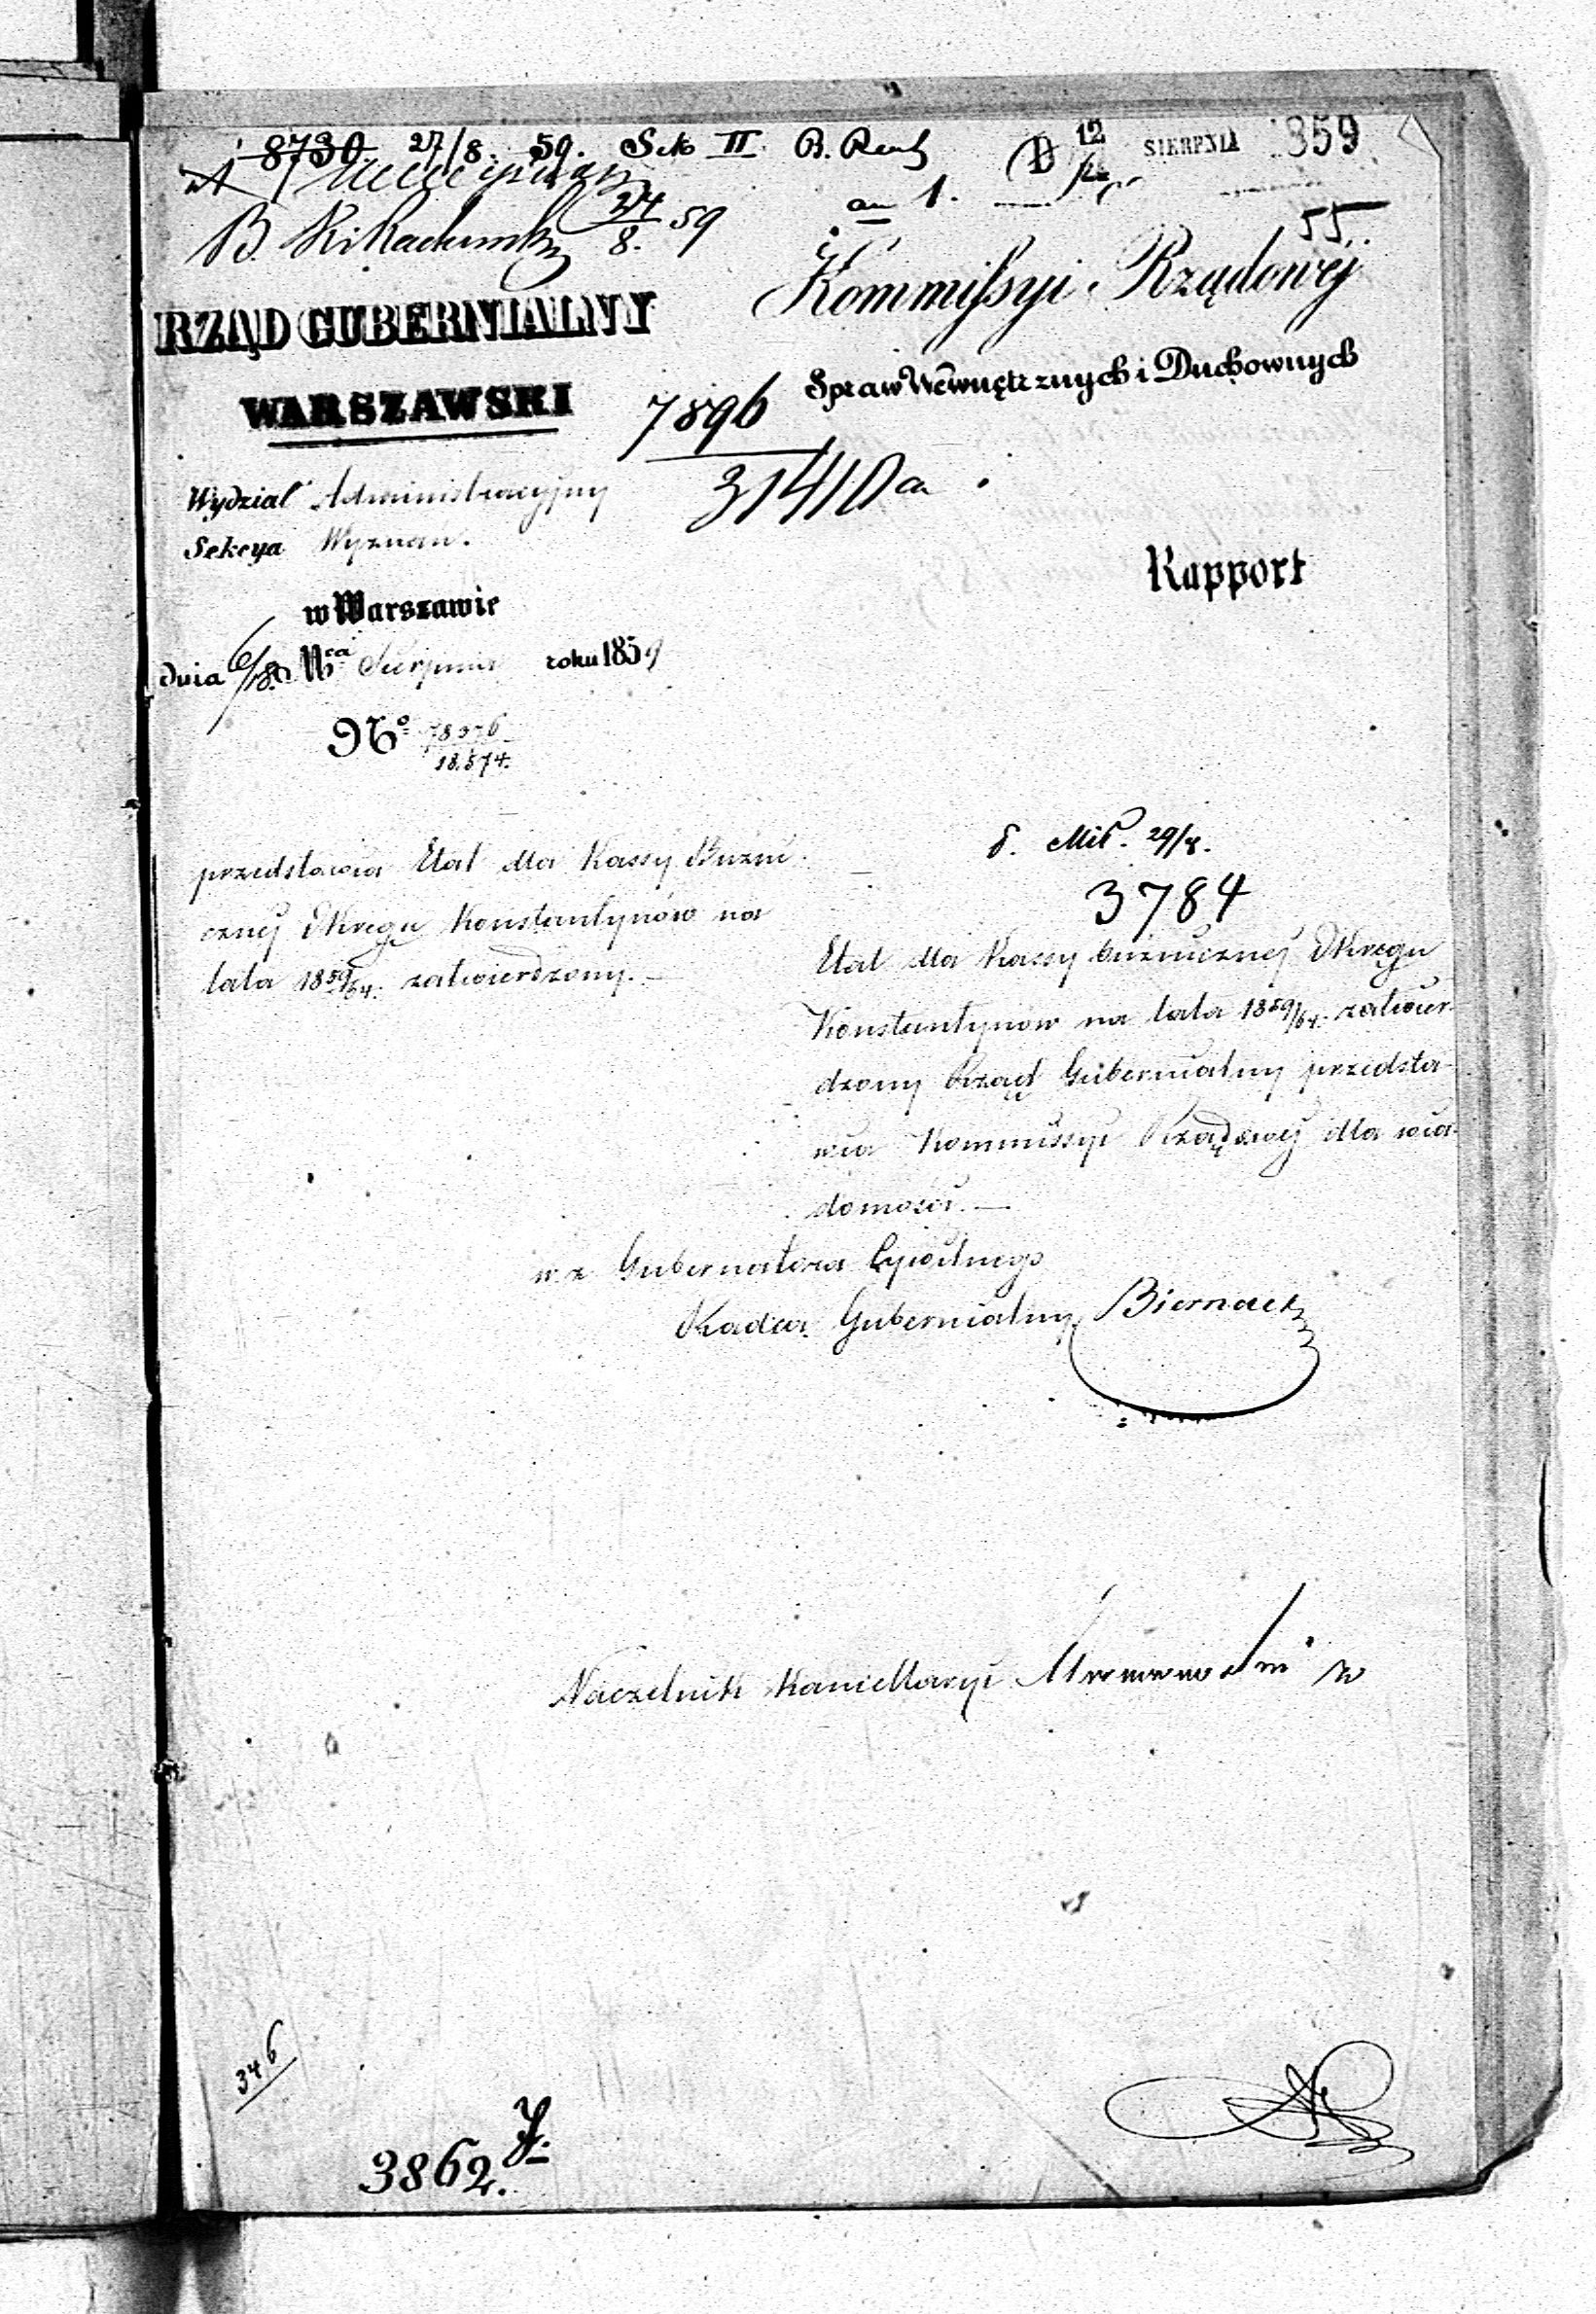 8730 27/8. 59. Sek II
12 SIERPNIA 1859
27/8. 59
an 1.
55.
Kommissyi Rządowéj
Spraw Wewnętrznych i Duchownych
RZĄD GUBERNIALNY
WARSZAWSKI
7896
31410 a
Wydział Administracyjny
Sekcya Wyznań.
Rapport
w Warszawie
dnia 6/18 Mca Sierpnia roku 1859
No 78376
18.574.
przedstawia Etat dla Kassy Buźni-
cznej Okręgu Konstantynów na
lata 1859/64. zatwierdzony. —
29/8.
3784
Etat dla Kassy buźnicznej Okręgu
Konstantynów na lata 1859/64. zatwier-
dzony Rząd Gubernialny przedsta-
wia Kommissyi Rządowej dla wia-
domości. —
w z Gubernatora Cywilnego
Radca Gubernialny Biernacki
Naczelnik Kancellaryi
346
3862.